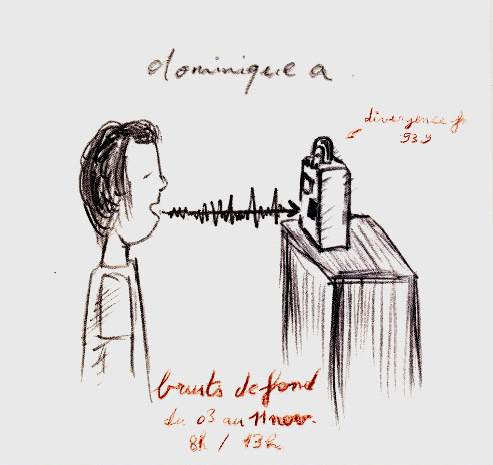 dominique a
divergence fm
93.9
bruits de fond
du 03 au 11 nov.
8h / 13h